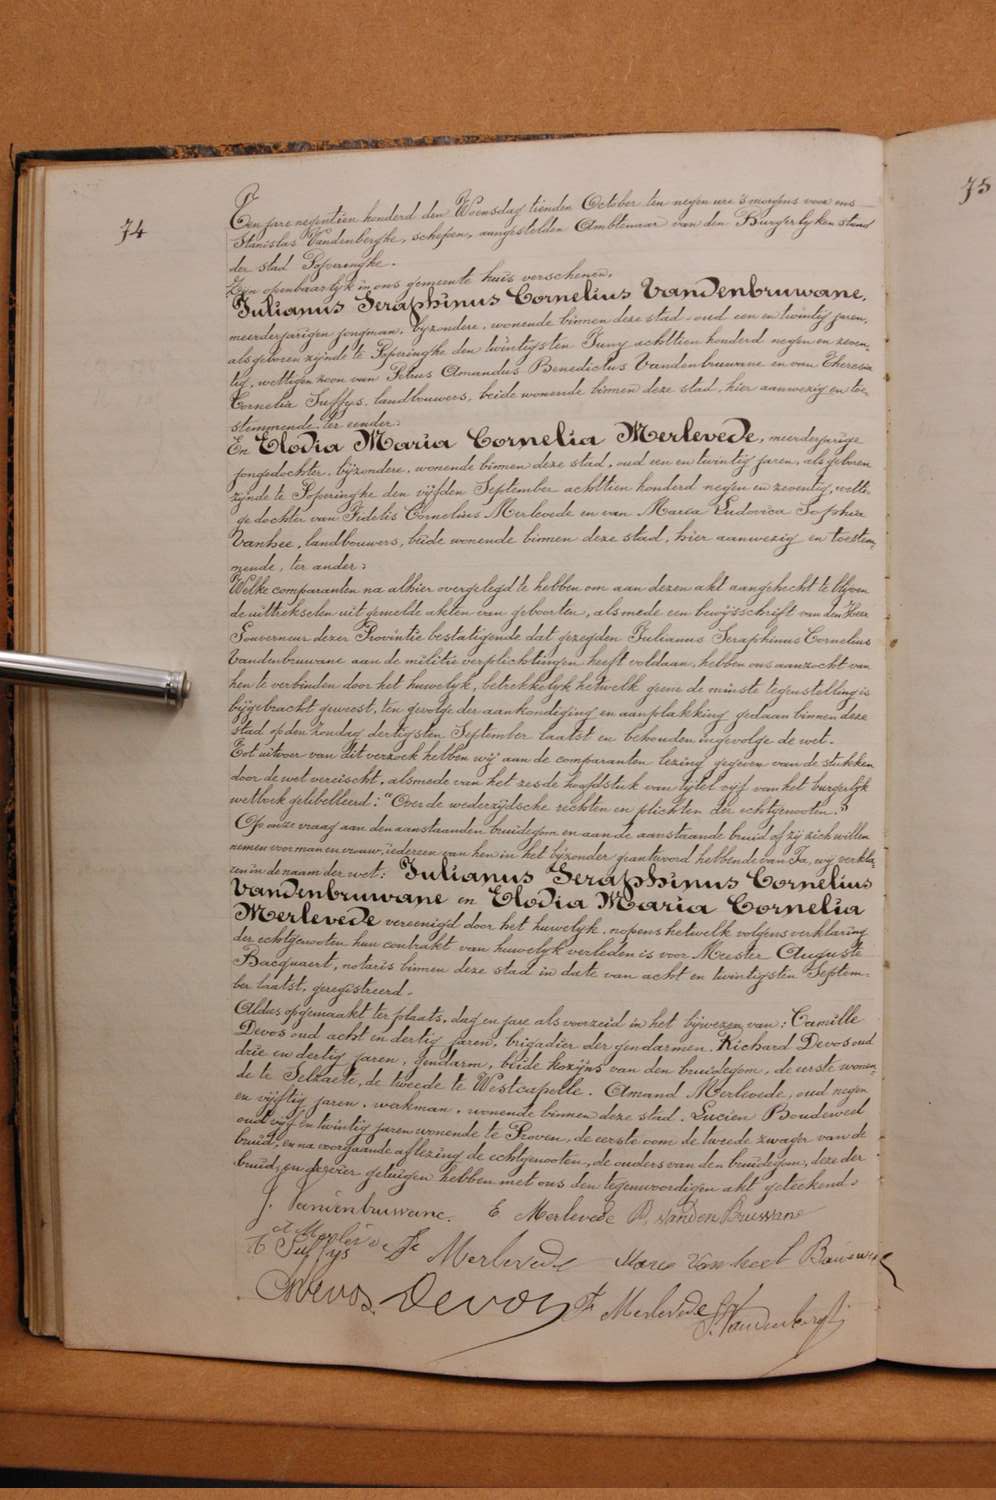 74
75
Ten jare negentien honderd den Woensdag tienden October ten negen ure 's morgens voor ons
Stanislas Vandenberghe, schepen, aangestelden Ambtenaar van den Burgerlyken stand
der stad Poperinghe.
Zijn openbaarlyk in ons gemeente huis verschenen,
Julianus Seraphinus Cornelius Vandenbruwane,
meerderjarigen jongman, byzondere, wonende binnen deze stad, oud een en twintig jaren,
als geboren zijnde te Poperinghe den twintigsten Juny achttien honderd negen en zeven-
tig, wettigen zoon van Petrus Amandus Benedictus Vandenbruwane en van Theresia
Cornelia Suffys, landbouwers, beide wonende binnen deze stad, hier aanwezig en toe-
stemmende, ter eender;
En Elodia Maria Cornelia Merlevede, meerderjarige
jongedochter, byzondere, wonende binnen deze stad, oud een en twintig jaren, als geboren
zijnde te Poperinghe den vijfden September achttien honderd negen en zeventig, wetti-
ge dochter van Fidelis Cornelius Merlevede en van Maria Ludovica Sophia
Vanhee, landbouwers, beide wonende binnen deze stad, hier aanwezig en toestem-
mende, ter ander;
Welke comparanten na alhier overgelegd te hebben om aan dezen akt aangehecht te blyven
de uittrekselen uit gemelde akten van geboorten, alsmede een bewijsschrift van den Heer
Gouverneur dezer Provintie bestatigende dat gezegden Julianus Seraphinus Cornelius
Vandenbruwane aan de militie verplichtingen heeft voldaan, hebben ons aanzocht van
hen te verbinden door het huwelyk, betrekkelyk hetwelk geene de minste tegenstelling is
bijgebracht geweest, ten gevolge der aankondiging en aanplakking gedaan binnen deze
stad op den Zondag dertigsten September laatst en behouden ingevolge de wet.
Tot uitvoer van dit verzoek hebben wij aan de comparanten lezing gegeven van de stukken
door de wet vereischt, alsmede van het zesde hoofdstuk van tytel vyf van het burgerlyk
wetboek gelibelleerd: "Over de wederzijdsche rechten en plichten der echtgenooten."
Op onze vraag aan den aanstaanden bruidegom en aan de aanstaande bruid of zij zich willen
nemen voor man en vrouw, iedereen van hen in het bijzonder geantwoord hebbende van Ja, wij verkla-
zen in de naam der wet: Julianus Seraphinus Cornelius
Vandenbruwane en Elodia Maria Cornelia
Merlevede vereenigd door het huwelyk, nopens hetwelk volgens verklaring
der echtgenooten hun contrakt van huwelyk verleden is voor Meester Auguste
Bacquaert, notaris binnen deze stad in date van acht en twintigsten Septem-
ber laatst, geregistreerd.
Aldus opgemaakt ter plaats, dag en jare als voorzeid in het bijwezen van: Camille
Devos oud acht en dertig jaren, brigadier der gendarmen, Richard Devos oud
drie en dertig jaren, gendarm, beide kozijns van den bruidegom, de eerste wonen-
de te Selzaete, de tweede te Westcapelle. Amand Merlevede, oud negen
en vijftig jaren, werkman, wonende binnen deze stad. Lucien Boudeweel
oud vijf en twintig jaren wonende te Proven, de eerste oom de tweede zwager van de
bruid, en na voorgaande aflezing de echtgenooten, de ouders van den bruidegom, deze der
bruid, en de vier getuigen hebben met ons den tegenwoordigen akt geteekend.
J. Vandenbruwane. E Merlevede P VandenBruwane
A Merlevede
T Suffys Merlevede Marie Vanhee L
Devos Devos Merlevede S. Vandenberghe